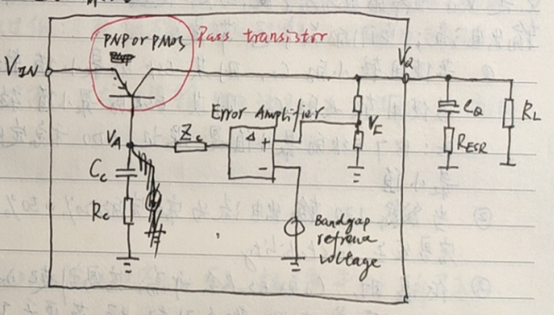 PNP or PMOS
Pass transistor
VIN
VQ
Error Amplifier
VA
Zc
+
-
VF
CQ
RESR
RL
Cc
Rc
Bandgap
refrence
voltage